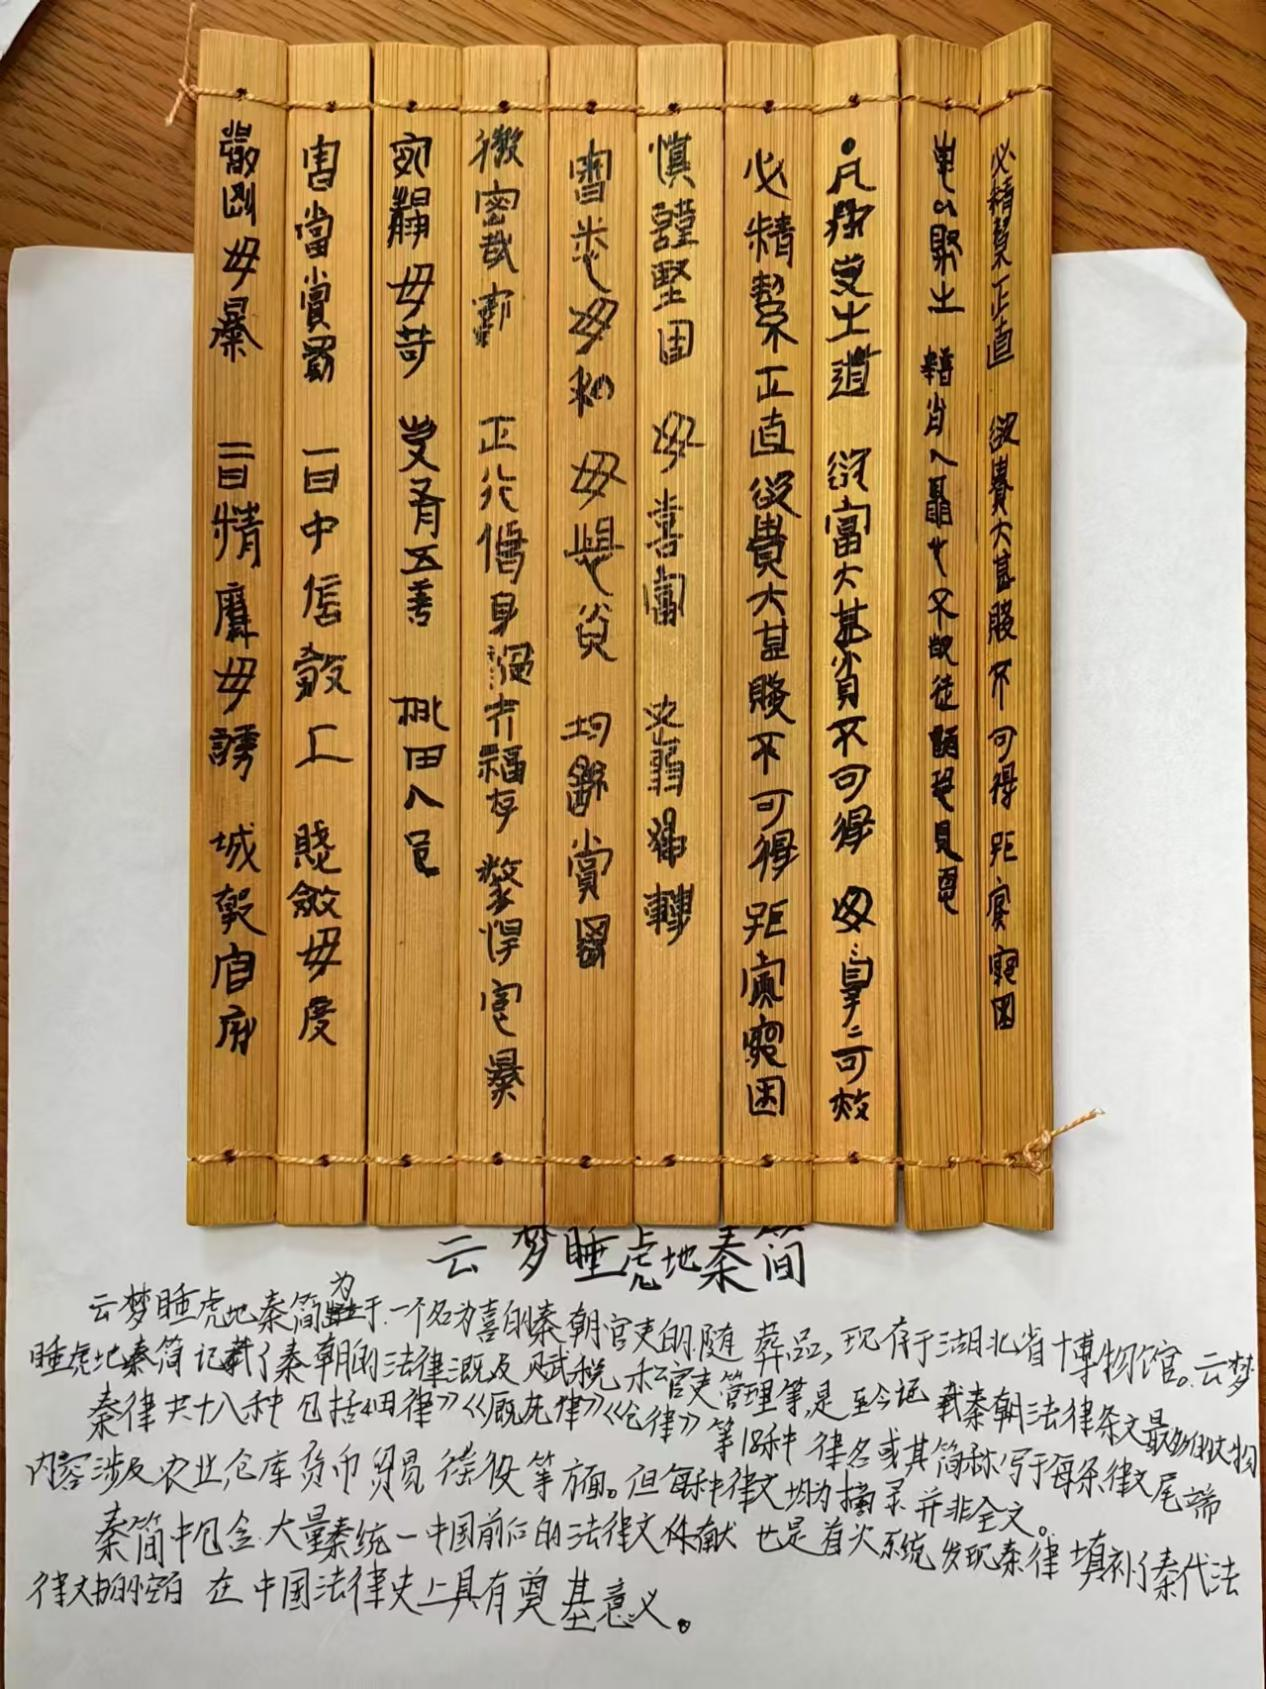 必精絜正直 欲貴大甚賤不可得 距窮困
吏以 士 人 不 徒 見
●凡 吏之道 欲富大甚貧不可得 毋 可
必精絜正直 欲貴大甚賤不可得 距 窮困
慎謹堅固 毋喜富 轉
審悉毋私 毋 貧 均 賞罰
微密 察 正行脩身 過去福存 悍 暴
寬 毋苛 吏有五善 桃田人邑
害當賞罰 一曰中信敬上 賤斂毋度
嚴剛毋暴 二曰精廉毋謗 城 官府
云梦睡虎地秦简
云梦睡虎地秦简为 于一个名为喜的秦朝官吏的随葬品,现存于湖北省博物馆。云梦
睡虎地秦简记载了秦朝的法律概及赋税和官吏管理等,是至今记载秦朝法律条文最多的文物
秦律共十八种包括《田律》《厩苑律》《仓律》等18种 律名或其简称写于每条律文尾端
内容涉及农业,仓库货币贸易 徭役等方面。但每种律文均为摘录并非全文。
秦简中包含大量秦统一中国前后的法律文件献 也是首次系统发现秦律 填补了秦代法
律文书的空白 在中国法律史上具有奠基意义。